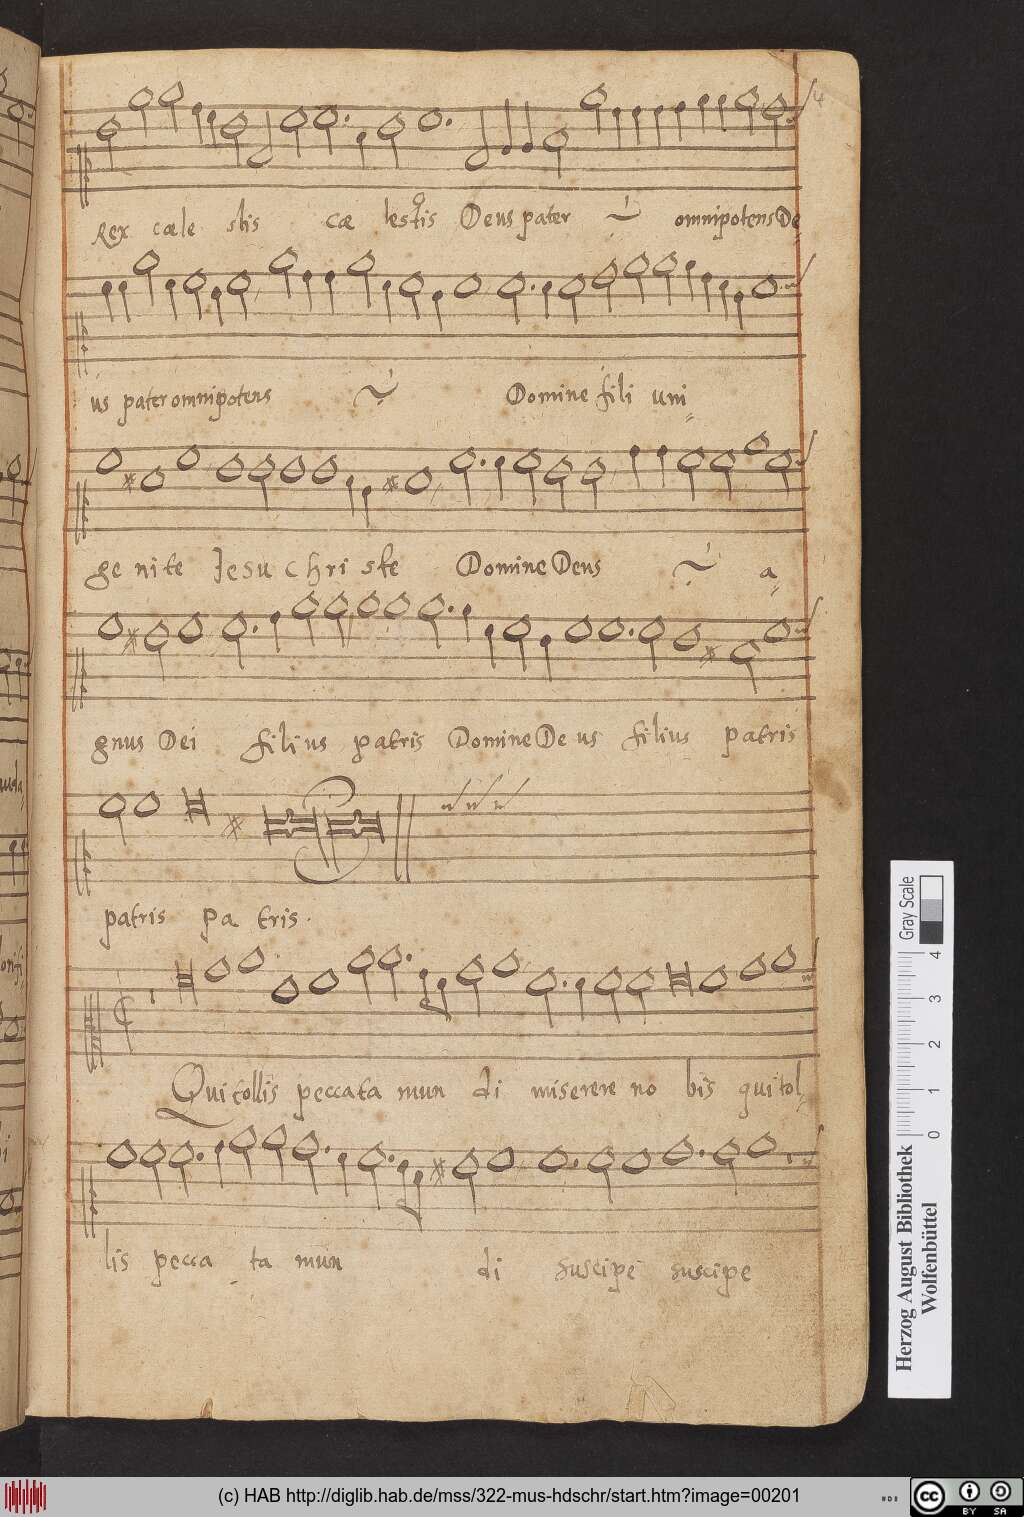 4
Rex cæle stis cæ lestis Deus pater omnipotens De=
us pater omnipotens Domine fili uni=
ge nite Jesu Chri ste Domine Deus a=
gnus Dei filius patris Domine De us filius patris
patris pa tris.
Qui tollis peccata mun di miserere no bis qui tol=
lis pecca ta mun di suscipe suscipe
Gray Scale
0 1 2 3 4
Herzog August Bibliothek
Wolfenbüttel
(c) HAB http://diglib.hab.de/mss/322-mus-hdschr/start.htm?image=00201
HAB
cc BY SA